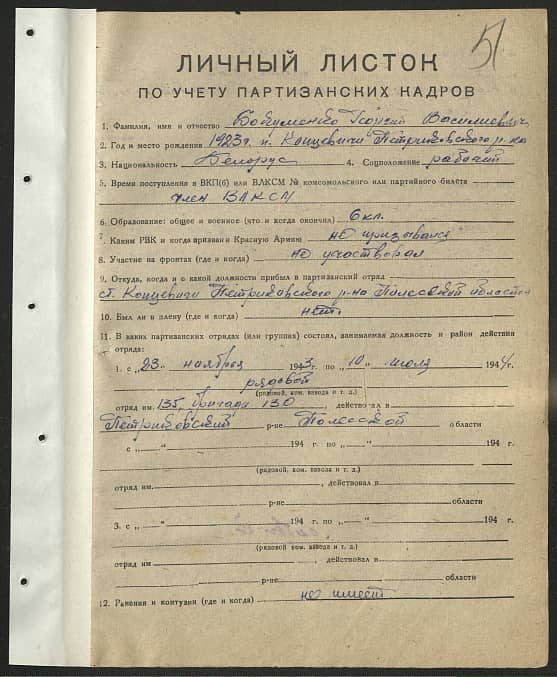 51
ЛИЧНЫЙ ЛИСТОК
ПО УЧЕТУ ПАРТИЗАНСКИХ КАДРОВ
1. Фамилия, имя и отчество Василиевич
2. Год и место рождения 1923г. п. Копцевичи Петриковского р-на
3. Национальность Белорус 4. Соцположение работай
5. Время поступления в ВКП(б) или ВЛКСМ № комсомольского или партийного билета
член ВЛКСМ
6. Образование: общее и военное (что и когда окончил) 6 кл.
7. Каким РВК и когда призван в Красную Армию не призывался
8. Участие на фронтах (где и когда) не участвовал
9. Откуда, когда и с какой должности прибыл в партизанский отряд
ст. Копцевичи Петриковского р-на Полесской области
10. Был ли в плену (где и когда) нет.
11. В каких партизанских отрядах (или группах) состоял, занимаемая должность и район действия
отряда:
1. с „23" ноября 1943 г. по „10" июля 1944 г.
рядовой
(рядовой, ком. взвода и т. д.)
отряд им. 135 бригада 130, действовал в
Петриковский р-не Полесской области
с „ " 194 г. по „ " 194 г.
(рядовой, ком. взвода и т. д.)
отряд им. , действовал в
р-не области
3. с „ " 194 г. по „ " 194 г.
(рядовой ком. взвода и т. д.)
отряд им , действовал в
р-не области
12. Ранения и контузии (где и когда) не имеет